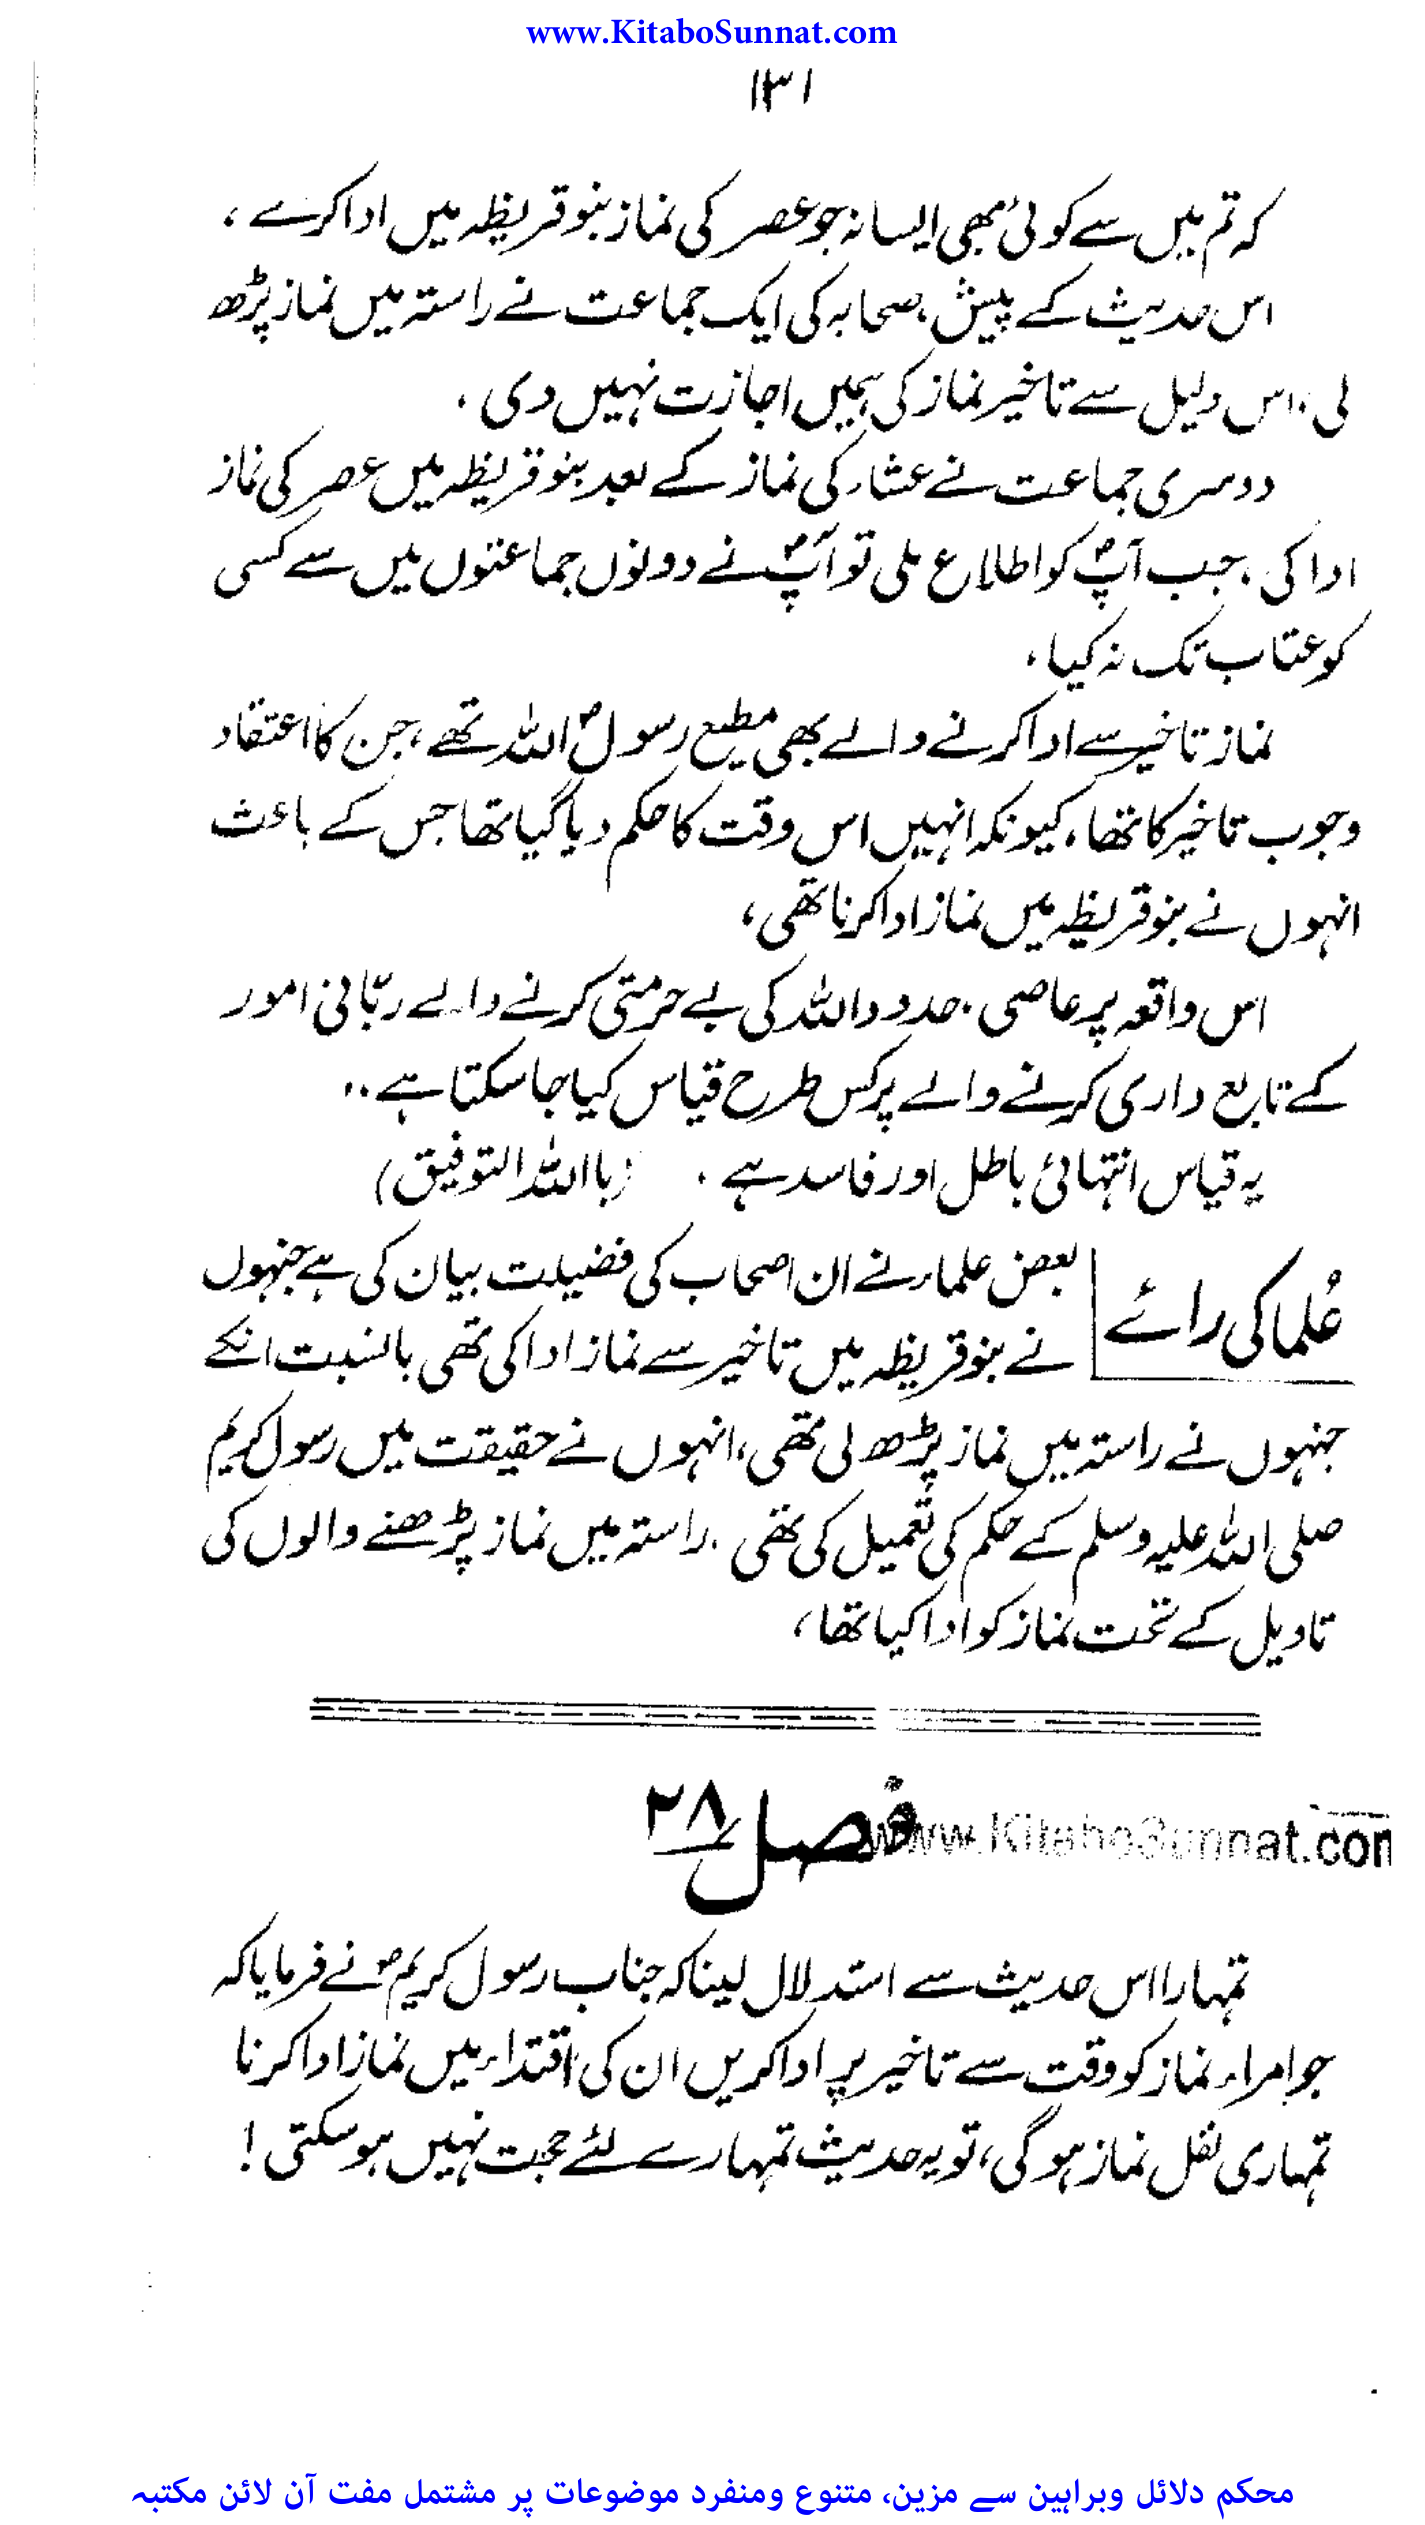 www.KitaboSunnat.com
۱۳۱
کہ تم میں سے کوئی بھی ایسا نہ جو عصر کی نماز بنو قریظہ میں ادا کرے ،
اس حدیث کے پیش، صحابہ کی ایک جماعت نے راستہ میں نماز پڑھ
لی، اس دلیل سے تاخیر نماز کی ہمیں اجازت نہیں دی ۔
دوسری جماعت نے عشاء کی نماز کے بعد بنو قریظہ میں عصر کی نماز
ادا کی ۔ جب آپؐ کو اطلاع ملی تو آپؐ نے دونوں جماعتوں میں سے کسی
کو عتاب تک نہ کیا ،
نماز تاخیر سے ادا کرنے والے بھی مطیع رسولؐ اللہ تھے، جن کا اعتقاد
وجوب تاخیر کا تھا، کیونکہ انہیں اس وقت کا حکم دیا گیا تھا جس کے باعث
انہوں نے بنو قریظہ میں نماز ادا کرنا تھی،
اس واقعہ پر عاصی ۔ حدود اللہ کی بے حرمتی کرنے والے ربّانی امور
کے تابع داری کرنے والے پر کس طرح قیاس کیا جا سکتا ہے ۔۔
یہ قیاس انتہائی باطل اور فاسد ہے ۔ (با اللہ التوفیق)
عُلما کی رائے
بعض علماء نے ان اصحاب کی فضیلت بیان کی ہے جنہوں
نے بنو قریظہ میں تاخیر سے نماز ادا کی تھی بالنسبت انکے
جنہوں نے راستہ میں نماز پڑھ لی تھی، انہوں نے حقیقت میں رسول کریم
صلی اللہ علیہ وسلم کے حکم کی تعمیل کی تھی ۔ راستہ میں نماز پڑھنے والوں کی
تاویل کے تحت نماز کو ادا کیا تھا ،
فصل ۲۸
www.KitaboSunnat.com
تمہارا اس حدیث سے استدلال لینا کہ جناب رسول کریمؐ نے فرمایا کہ
جو امراء نماز کو وقت سے تاخیر پر ادا کریں ان کی اقتداء میں نماز ادا کرنا
تمہاری نفل نماز ہو گی، تو یہ حدیث تمہارے لئے حجت نہیں ہو سکتی !
محکم دلائل وبراہین سے مزین، متنوع ومنفرد موضوعات پر مشتمل مفت آن لائن مکتبہ